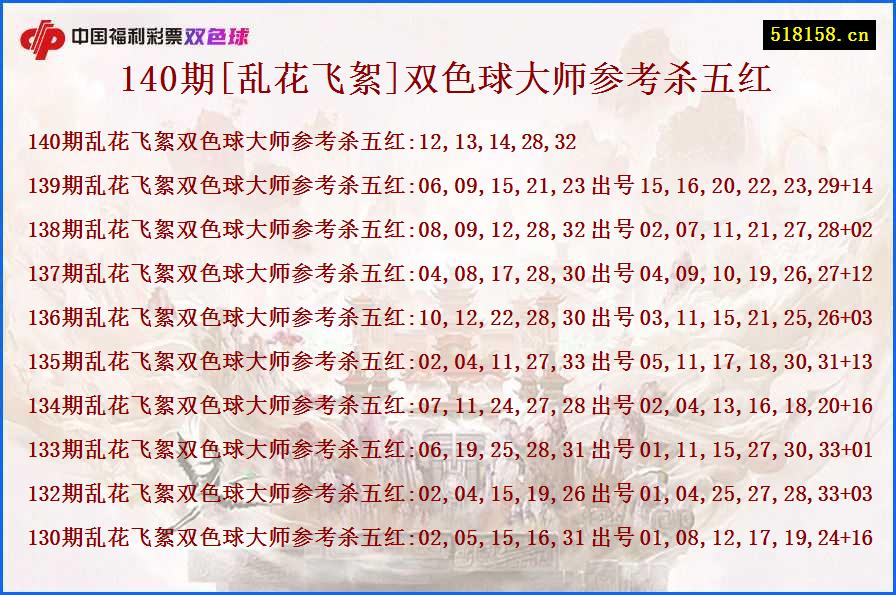 中国福利彩票双色球
518158.cn
140期[乱花飞絮]双色球大师参考杀五红
140期乱花飞絮双色球大师参考杀五红:12,13,14,28,32
139期乱花飞絮双色球大师参考杀五红:06,09,15,21,23 出号 15,16,20,22,23,29+14
138期乱花飞絮双色球大师参考杀五红:08,09,12,28,32 出号 02,07,11,21,27,28+02
137期乱花飞絮双色球大师参考杀五红:04,08,17,28,30 出号 04,09,10,19,26,27+12
136期乱花飞絮双色球大师参考杀五红:10,12,22,28,30 出号 03,11,15,21,25,26+03
135期乱花飞絮双色球大师参考杀五红:02,04,11,27,33 出号 05,11,17,18,30,31+13
134期乱花飞絮双色球大师参考杀五红:07,11,24,27,28 出号 02,04,13,16,18,20+16
133期乱花飞絮双色球大师参考杀五红:06,19,25,28,31 出号 01,11,15,27,30,33+01
132期乱花飞絮双色球大师参考杀五红:02,04,15,19,26 出号 01,04,25,27,28,33+03
130期乱花飞絮双色球大师参考杀五红:02,05,15,16,31 出号 01,08,12,17,19,24+16